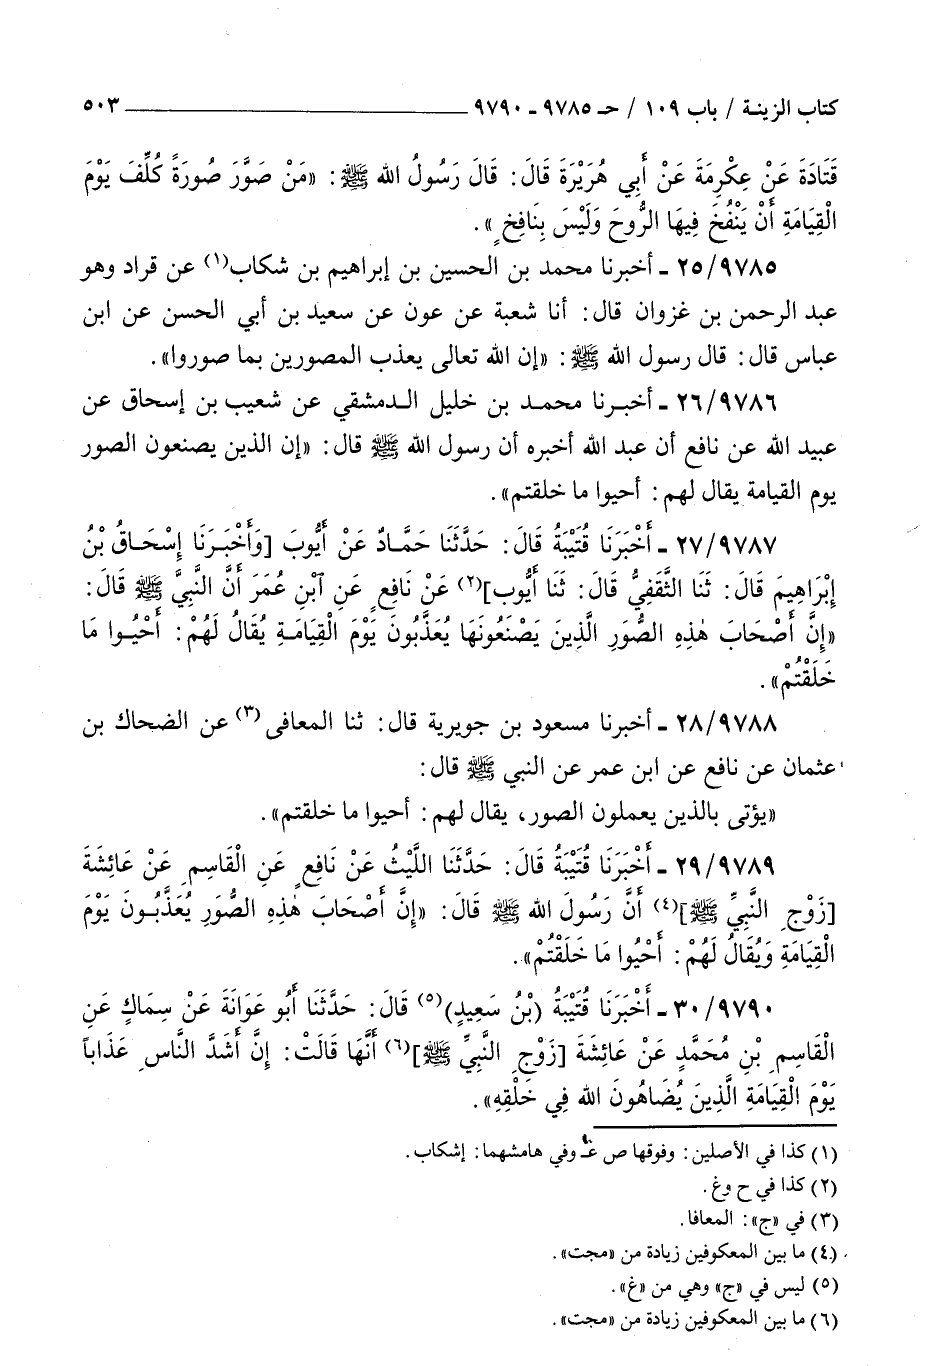 كتاب الزينة / باب ١٠٩ / حـ ٩٧٨٥ ـ ٩٧٩٠ ٥٠٣
قَتَادَةَ عَنْ عِكْرِمَةَ عَنْ أَبِي هُرَيْرَةَ قَالَ: قَالَ رَسُولُ الله ﷺ: «مَنْ صَوَّرَ صُورَةً كُلِّفَ يَوْمَ
الْقِيَامَةِ أَنْ يَنْفُخَ فِيهَا الرُّوحَ وَلَيْسَ بِنَافِخٍ».
٢٥/٩٧٨٥ ـ أخبرنا محمد بن الحسين بن إبراهيم بن شكاب(١) عن قراد وهو
عبد الرحمن بن غزوان قال: أنا شعبة عن عون عن سعيد بن أبي الحسن عن ابن
عباس قال: قال رسول الله ﷺ: «إن الله تعالى يعذب المصورين بما صوروا».
٢٦/٩٧٨٦ ـ أخبرنا محمد بن خليل الدمشقي عن شعيب بن إسحاق عن
عبيد الله عن نافع أن عبد الله أخبره أن رسول الله ﷺ قال: «إن الذين يصنعون الصور
يوم القيامة يقال لهم: أحيوا ما خلقتم».
٢٧/٩٧٨٧ ـ أَخْبَرَنَا قُتَيْبَةُ قَالَ: حَدَّثَنَا حَمَّادٌ عَنْ أَيُّوبَ [وَأَخْبَرَنَا إِسْحَاقُ بْنُ
إِبْرَاهِيمَ قَالَ: ثَنَا الثَّقَفِيُّ قَالَ: ثَنَا أَيُّوب](٢) عَنْ نَافِعٍ عَنِ ٱبْنِ عُمَرَ أَنَّ النَّبِيَّ ﷺ قَالَ:
«إِنَّ أَصْحَابَ هٰذِهِ الصُّوَرِ الَّذِينَ يَصْنَعُونَهَا يُعَذَّبُونَ يَوْمَ الْقِيَامَةِ يُقَالُ لَهُمْ: أَحْيُوا مَا
خَلَقْتُمْ».
٢٨/٩٧٨٨ ـ أخبرنا مسعود بن جويرية قال: ثنا المعافى(٣) عن الضحاك بن
عثمان عن نافع عن ابن عمر عن النبي ﷺ قال:
«يؤتى بالذين يعملون الصور، يقال لهم: أحيوا ما خلقتم».
٢٩/٩٧٨٩ ـ أَخْبَرَنَا قُتَيْبَةُ قَالَ: حَدَّثَنَا اللَّيْثُ عَنْ نَافِعٍ عَنِ الْقَاسِمِ عَنْ عَائِشَةَ
[زَوْجِ النَّبِيِّ ﷺ](٤) أَنَّ رَسُولَ الله ﷺ قَالَ: «إِنَّ أَصْحَابَ هٰذِهِ الصُّوَرِ يُعَذَّبُونَ يَوْمَ
الْقِيَامَةِ وَيُقَالُ لَهُمْ: أَحْيُوا مَا خَلَقْتُمْ».
٣٠/٩٧٩٠ ـ أَخْبَرَنَا قُتَيْبَةُ (بْنُ سَعِيدٍ)(٥) قَالَ: حَدَّثَنَا أَبُو عَوَانَةَ عَنْ سِمَاكٍ عَنِ
الْقَاسِمِ بْنِ مُحَمَّدٍ عَنْ عَائِشَةَ [زَوْجِ النَّبِيِّ ﷺ](٦) أَنَّهَا قَالَتْ: إِنَّ أَشَدَّ النَّاسِ عَذَاباً
يَوْمَ الْقِيَامَةِ الَّذِينَ يُضَاهُونَ الله فِي خَلْقِهِ».
(١) كذا في الأصلين: وفوقها ص عـ وفي هامشهما: إشكاب.
(٢) كذا في ح وغ.
(٣) في «ج»: المعافا.
(٤) ما بين المعكوفين زيادة من «مجت».
(٥) ليس في «ج» وهي من «غ».
(٦) ما بين المعكوفين زيادة من «مجت».